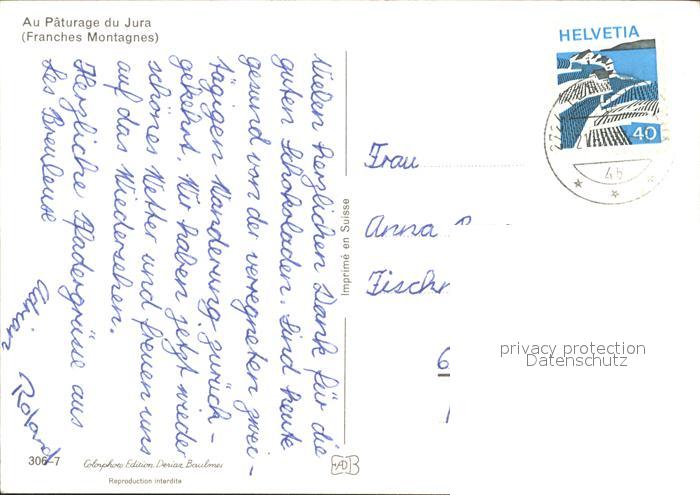 Au Pâturage du Jura
(Franches Montagnes)
Vielen herzlichen Dank für die
guten Schokoladen. Sind heute
gesund von der verregneten zwei-
tägigen Wanderung zurück-
gekehrt. Wir haben jetzt wieder
schönes Wetter und freuen uns
auf das Wiedersehen.
Herzliche Pfadergrüsse aus
Les Breuleux
Roland
306-7
Colorphoto Edition Deriaz Baulmes
Reproduction interdite
Imprimé en Suisse
HELVETIA
40
2724
46
Frau
Anna
Fisch
6
privacy protection
Datenschutz